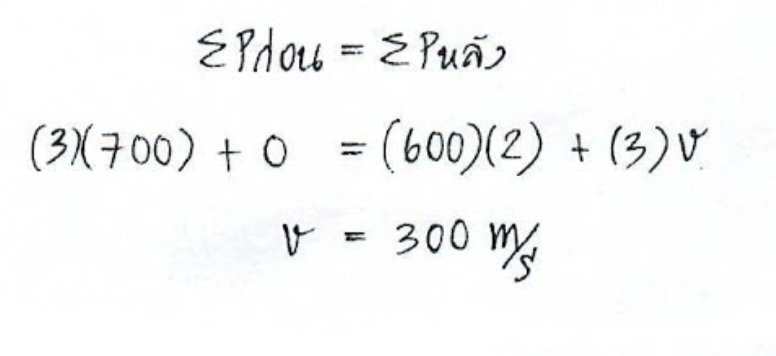 ΣPก่อน = ΣPหลัง
(3)(700) + 0 = (600)(2) + (3)v
v = 300 m/s